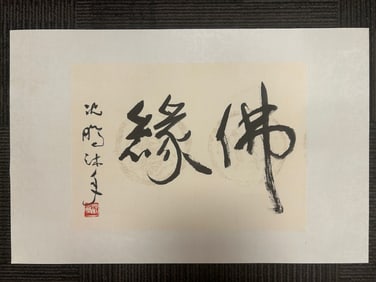 佛緣
沈鵬沐手